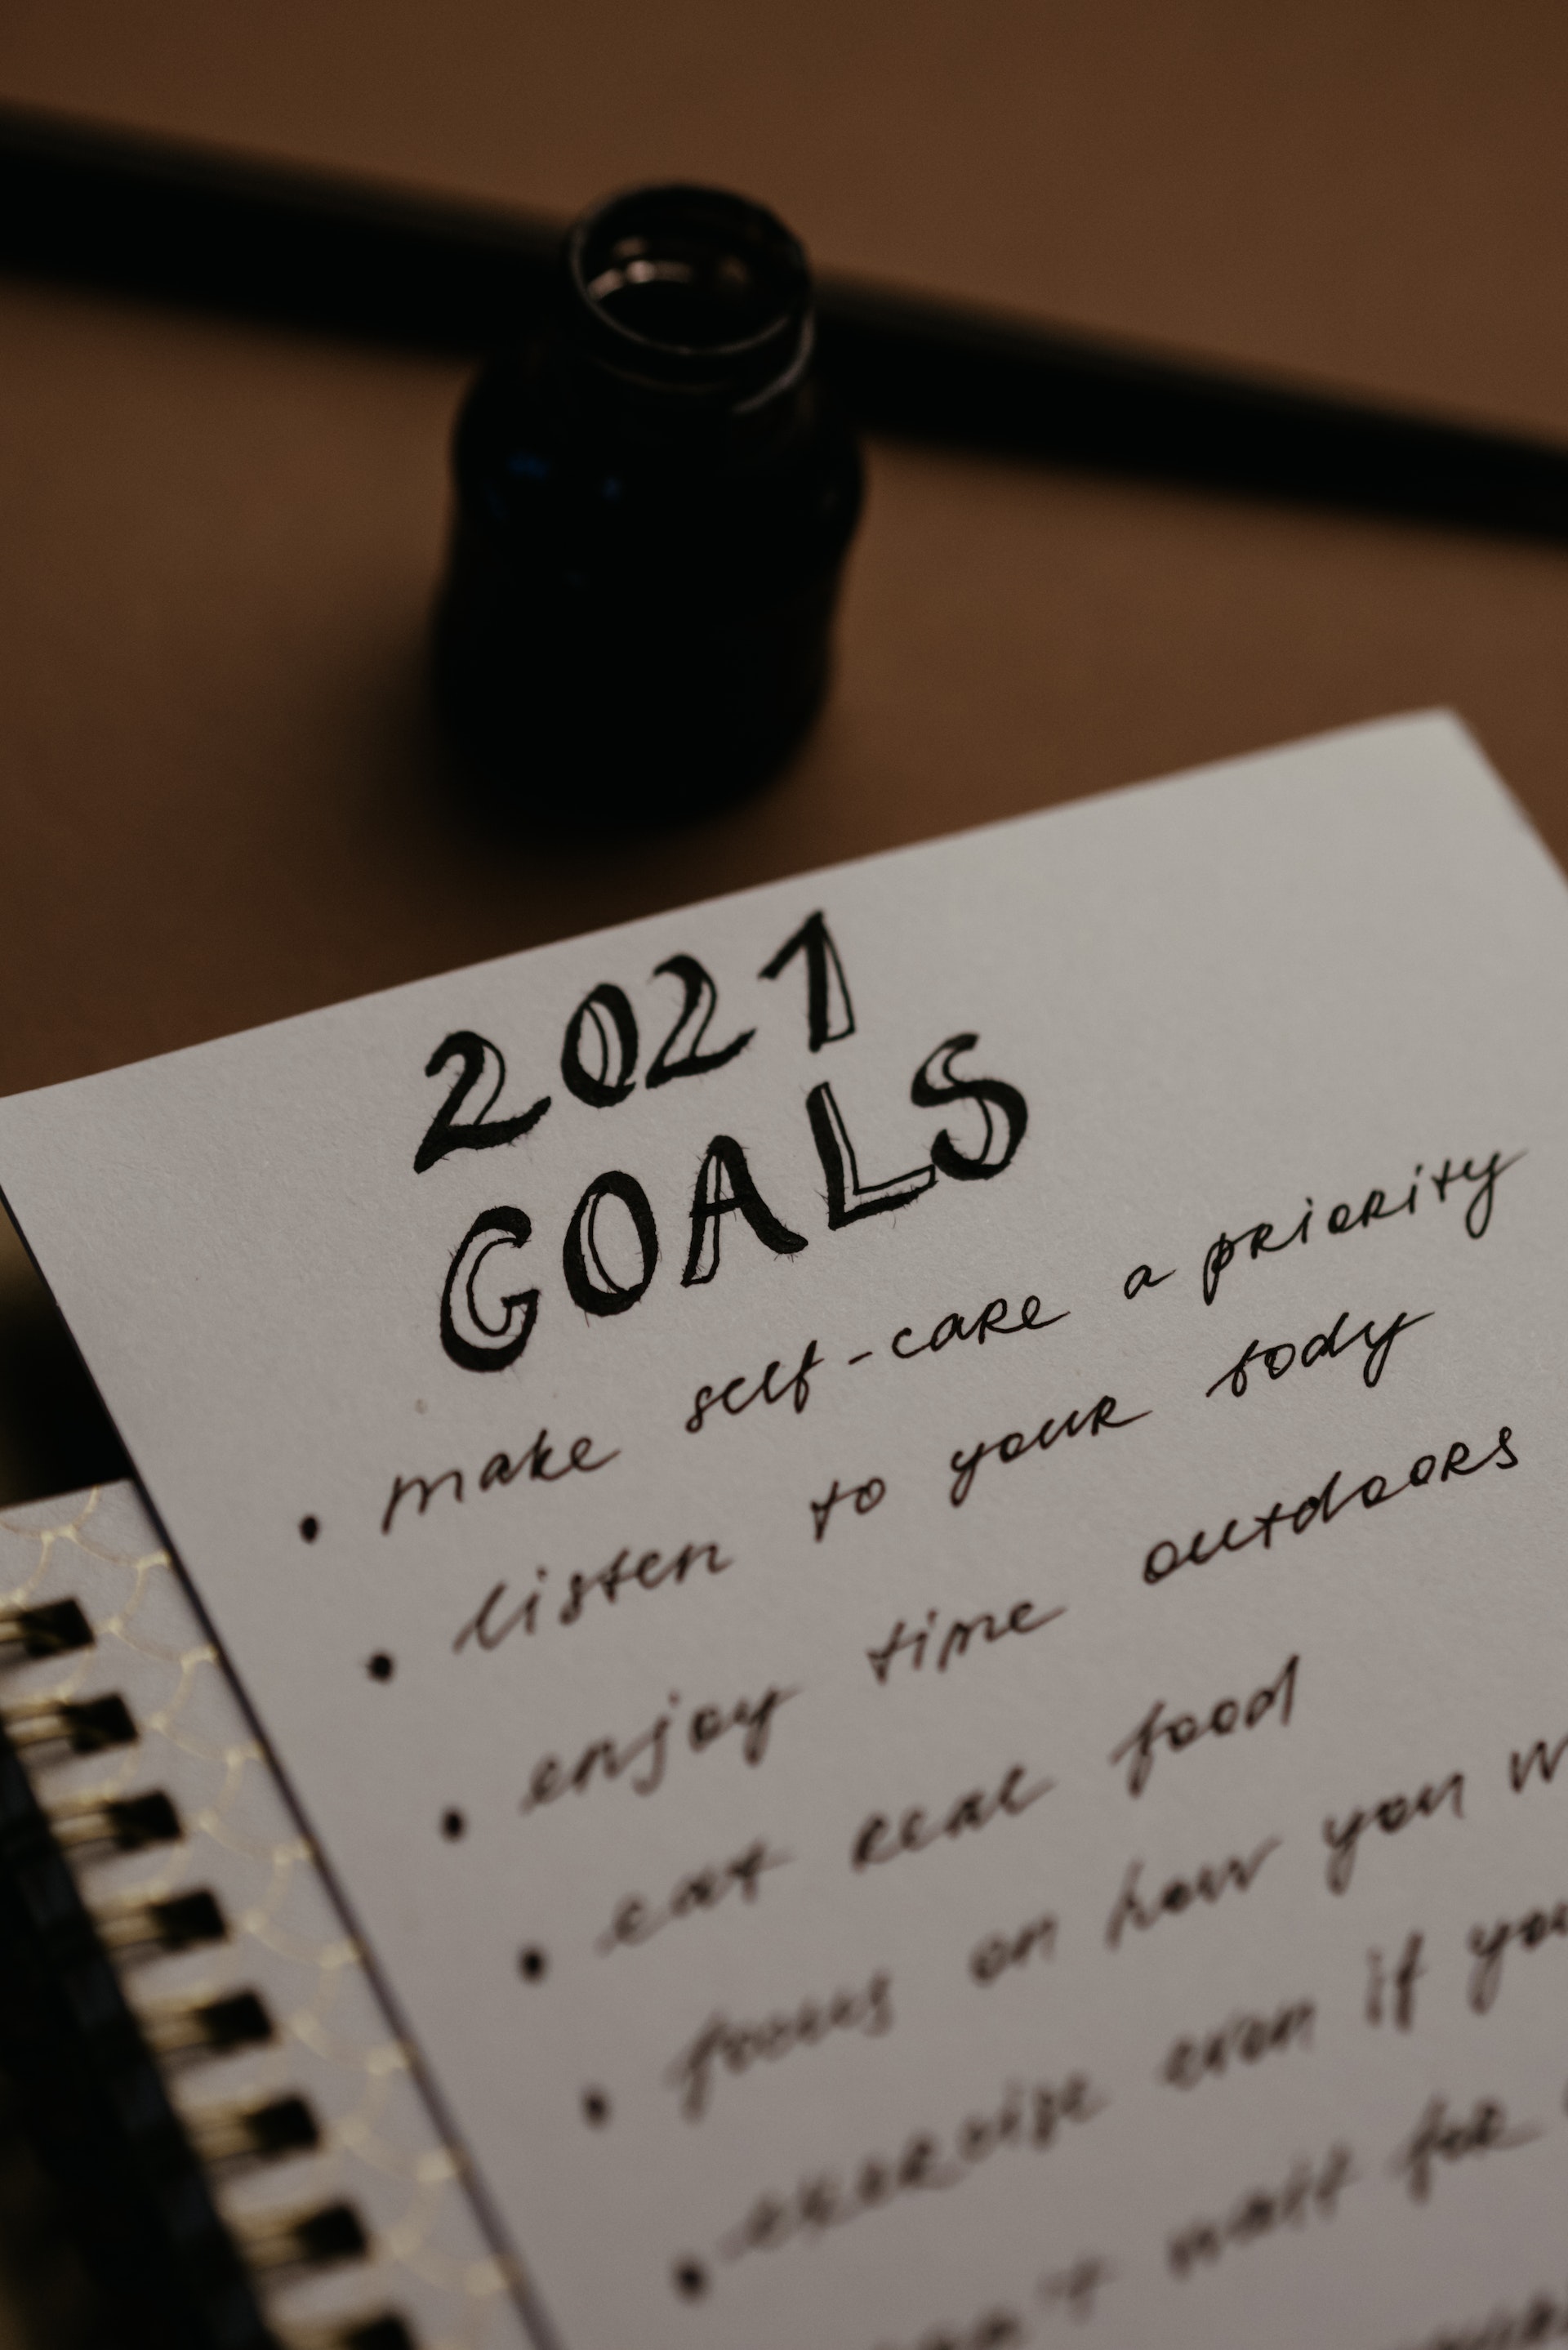 2021
GOALS
• make self-care a priority
• listen to your body
• enjoy time outdoors
• eat real food
• focus on how you
• exercise even if you
wait for